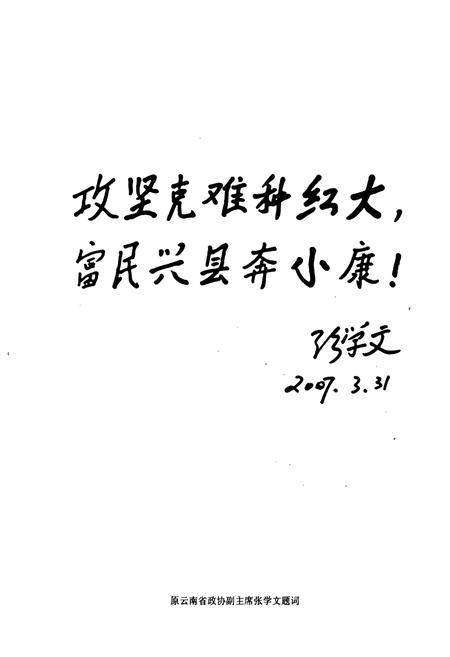 攻坚克难种红大，
富民兴县奔小康！
张学文
2007.3.31
原云南省政协副主席张学文题词